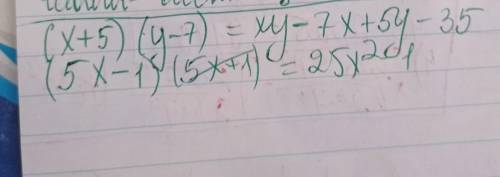 (x+5)(y-7) = xy-7x+5y-35
(5x-1)(5x+1) = 25x²-1